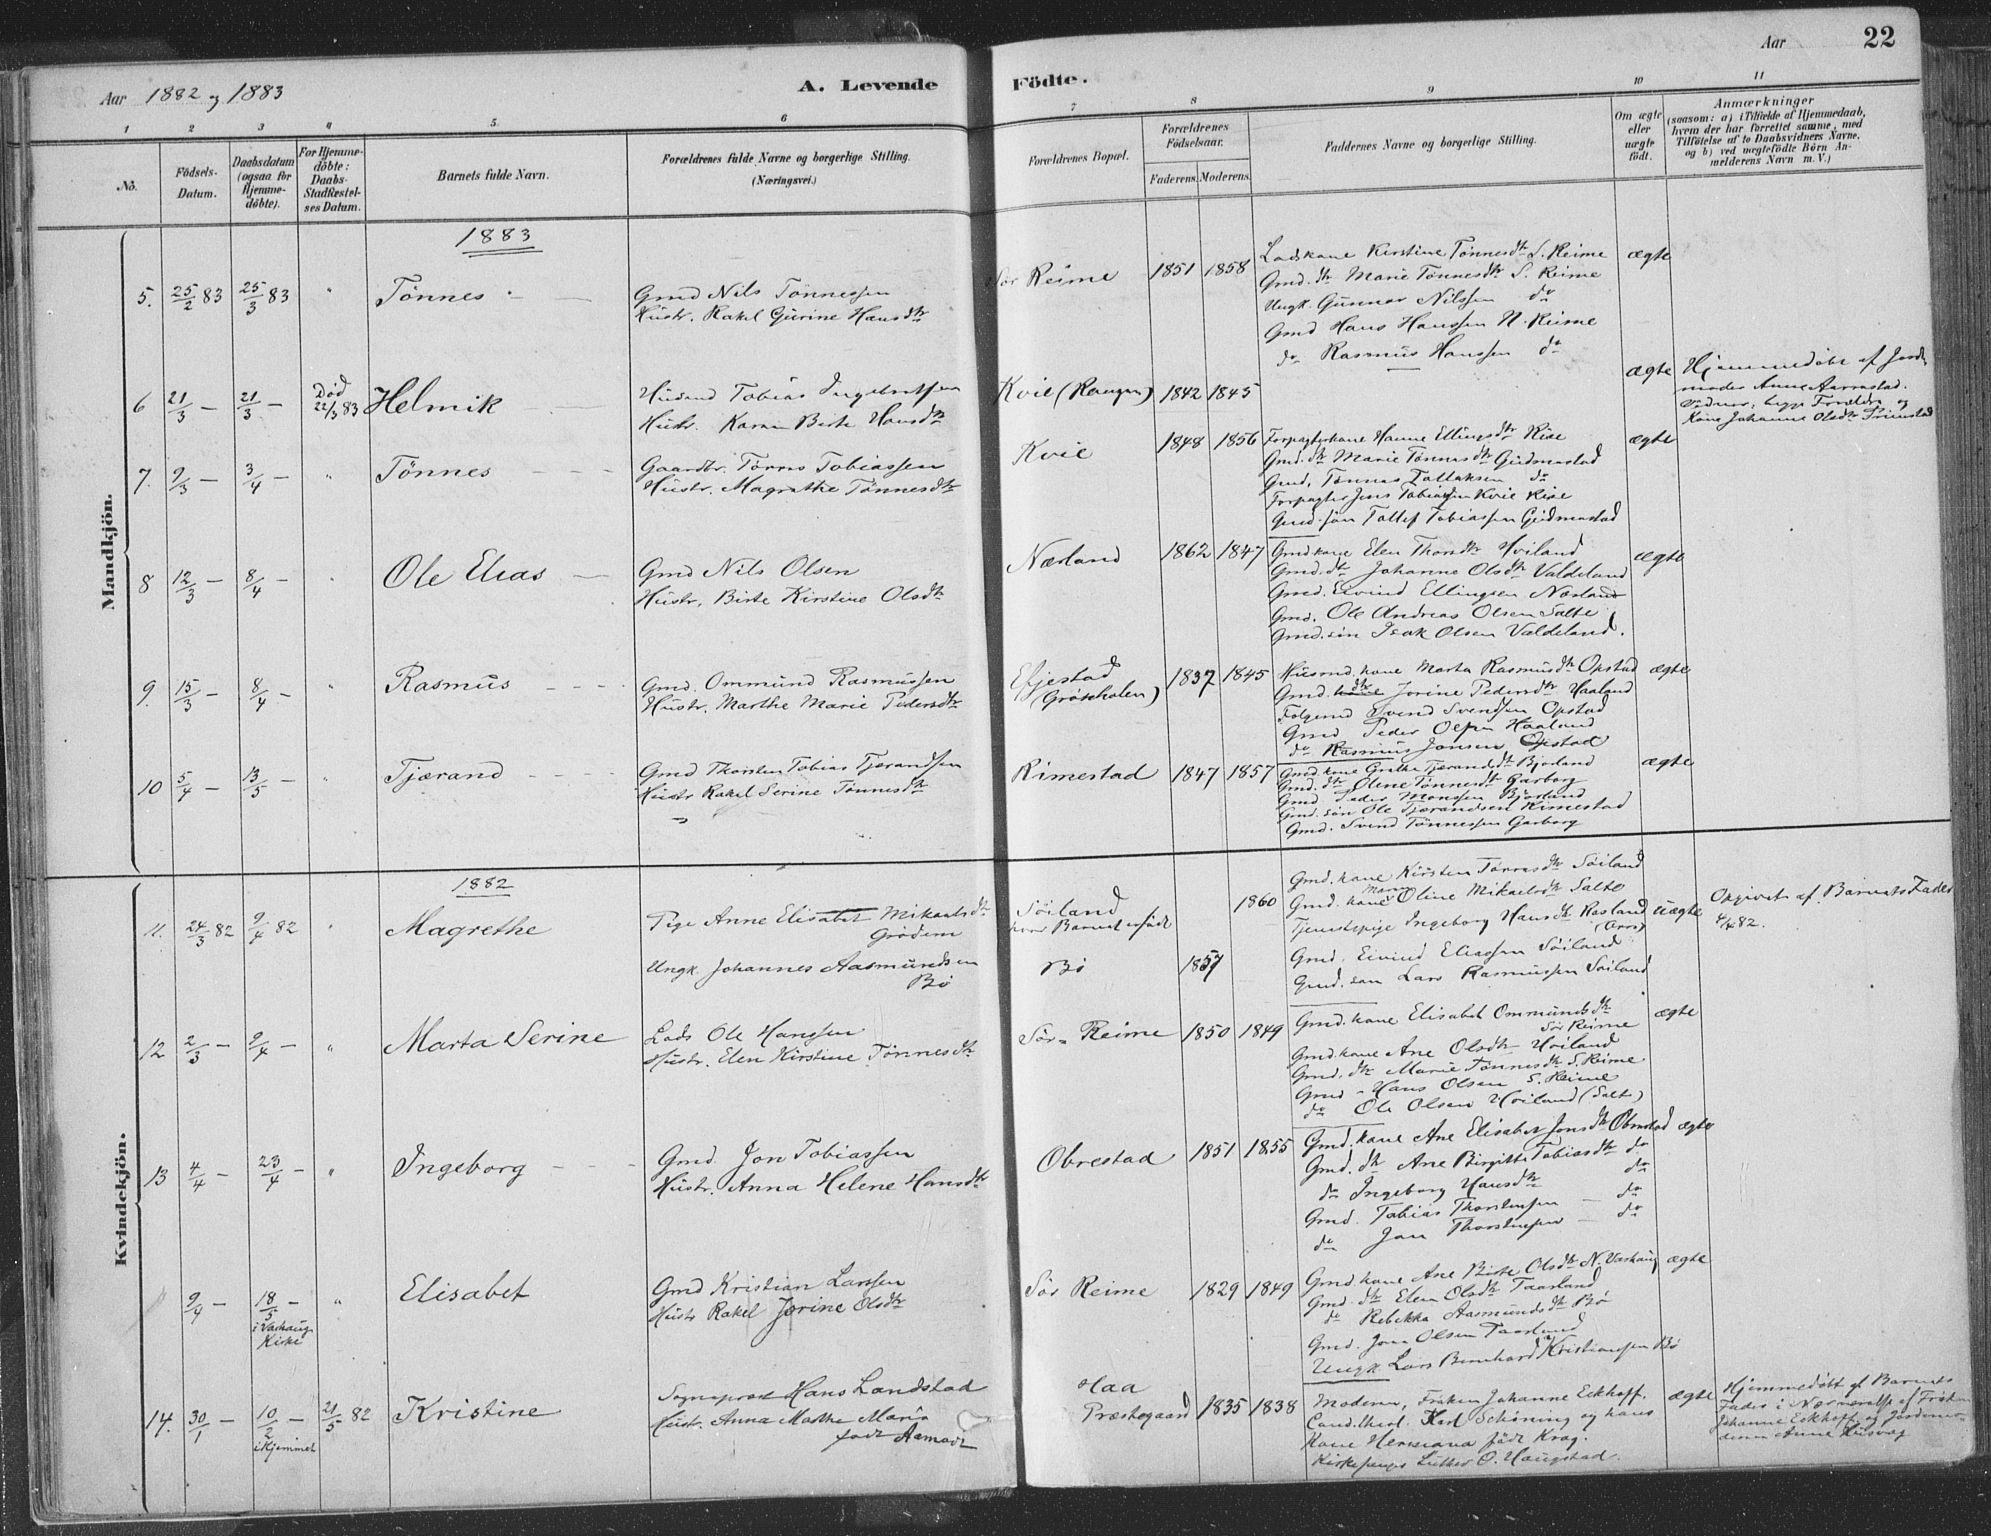 Aar 1882 og 1883
A. Levende Födte.
Aar
22
1 2 3 4 5. 6 7 8 9 10 11
No.
Födsels-Datum.
Daabsdatum (ogsaa for Hjemme-döbte).
For Hjemme-döbte: Daabs-Stadfæstel-ses Datum.
Barnets fulde Navn.
Forældrenes fulde Navne og borgerlige Stilling. (Næringsvei.)
Forældrenes Bopæl.
Forældrenes Födselsaar.
Faderens. Moderens.
Faddernes Navne og borgerlige Stilling.
Om ægte eller uægte födt.
Anmærkninger (saasom: a) i Tilfælde af Hjemmedaab, hvem der har forrettet samme, med Tilföielse af to Daabsvidners Navne, og b) ved uægtefödte Börn Anmelderens Navn m. V.)
Mandkjön.
1883
5. 25/2 83 25/3 83 " Tönnes
Gmd Nils Tönnessen
Hustr. Rakel Gurine Hansdtr
Sör Reime 1851 1858
Ladskone Kirstine Tönnesdtr S. Reime
Gmd. dtr Marie Tönnesdtr S. Reime
Ungk. Gunnar Nilssen do
Gmd Hans Hanssen N. Reime
do Rasmus Hanssen do
ægte
6 21/3 — 21/3 — Död 22/3 83 Helmik
Husmd Tobias Ingebretsen
Hustr. Karen Berte Hansdtr
Kvie (Haugen) 1842 1845
ægte
Hjemmedöbt af Jord-
moder Anne Aarrestad.
Vidner: begge Forældre og
Kone Johanne Olsdtr Grimstad
7. 9/3 — 3/4 — " Tönnes
Gaardbr. Törres Tobiassen
Hustr. Magrethe Tönnesdtr
Kvie 1848 1856
Forpagterkone Hanne Ellingsdtr Rise
Gmd. dtr Marie Tönnesdtr Gudmestad
Gmd. Tönnes Tollaksen do
Forpagter Jens Tobiassen Kvie Rise
Gmd. sön Tollef Tobiassen Gudmestad
ægte
8 12/3 — 8/4 — " Ole Elias
Gmd Nils Olsen
Hustr. Birte Kirstine Olsdtr
Nærland 1862 1847
Gmdkone Elen Thorsdtr Hviland
Gmd. dtr Johanne Olsdtr Valdeland
Gmd. Eivind Ellingsen Nærland
Gmd. Ole Andreas Olsen Salte
Gmd. sön Isak Olsen Valdeland.
ægte
9. 15/3 — 8/4 — " Rasmus
Gmd. Ommund Rasmussen
Hustr. Marthe Marie Pedersdtr
(Gröscholen) 1837 1845
Husmd. kone Marta Rasmusdtr Opstad
Gmd. dtr Jorine Pedersdtr Haaland
Folgemd Svend Svendsen Opstad
Gmd Peder Olsen Haaland
do Rasmus Jonsen Opstad
ægte
10 5/4 — 13/5 — " Tjærand
Gmd Thorsten Tobias Tjerandsen
Hustr Rakel Serine Tönnesdtr
Rimestad 1847 1857
Gmd kone Grethe Tjerandsdtr Bjorland
Gmd. dtr Olene Tönnesdtr Garborg
Gmd Peder Monssen Bjorland
Gmd. sön Ole Tjerandsen Rimestad
Gmd. Svend Tönnessen Garborg
ægte
Kvindekjön.
1882
11. 24/3 82 9/4 82 " Magrethe
Pige Anne Elisabet Mikaelsdtr
Grödem
Ungk. Johannes Aasmundsen
Bö
Söiland
hvor Barnet er födt
1860
Bö 1857
Gmd. kone Kirsten Törresdtr Söiland
Gmd. kone Maren Oline Mikaelsdtr Salte
Tjenestepige Ingeborg Hansdtr Rasland
(Orre)
Gmd. Eivind Eliassen Söiland
Gmd. søn Lars Rasmussen Söiland
uægte
Opgivet af Barnets Fader
4/4 82.
12 2/3 — 9/4 — " Marta Serine
Lads Ole Hanssen
Hustr. Elen Kirstine Tönnesdtr
Sör-Reime 1850 1849
Gmd. kone Elisabet Ommundsdtr
Sör Reime
Gmd. kone Ane Olsdtr Hviland
Gmd. dtr Marie Tönnesdtr S. Reime
Gmd - Hans Olsen S. Reime
do Ole Olsen Hviland (Salt)
ægte
13 4/4 — 23/4 — " Ingeborg
Gmd. Jon Tobiassen
Hustr. Anna Helene Hansdtr
Obrestad 1851 1855
Gmd. kone Ane Elisabet Jonsdtr Obrestad
Gmd. dtr Ane Birgitte Tobiasdtr do
do Ingeborg Hansdtr do
Gmd. Tobias Thorstensen — do
do Jon Thorstensen — do
ægte
9/9 — 18/5 — i Varhaug Kirke " Elisabet
Gmd Kristian Larssen
Hustr Rakel Jorine Olsdtr
Sör Reime 1829 1849
Gmd. kone Ane Birte Olsdtr N. Varhaug
Gmd. dtr Elen Olsdtr Taarland
do Rebekka Aasmundsdtr Bö
Gmd. Jon Olsen Taarland
Ungk. Lars Bernhard Kristiansen Bö
ægte
14. 30/1 — 10/2 — i Hjemmet 21/5 82 Kristine
Sognepræst Hans Landstad
Hustr. Anna Marthe Maria
födt Aamodt
Haa
Præstegaard 1835 1838
Moderen, Fröken Johanne Eckhoff.
Cand. theol. Karl Schöning og hans
Kone Hermana födt Krag.
Kirkesanger Luther O. Haugstad.
ægte
Hjemmedöbt af Barnets
Fader i Nærværelse af Fröken
Johanne Eckhoff og Jordemo-
deren Anne Husvæg